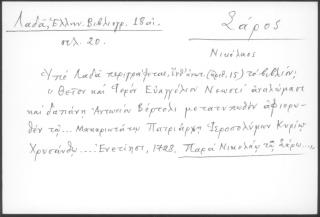 Λαδᾶ, Ἑλλην. Βιβλιογρ. 18 αἰ.
σελ. 20.
Σάρος
Νικόλαος
Ὑπὸ Λαδᾶ περιγράφεται, (ἀριθ. 15) τὸ βιβλίον;
"Θεῖον καὶ Ἱερὸν Εὐαγγέλιον Νεωστὶ ἀναλώμασι
καὶ δαπάνῃ Ἀντωνίου Βόρτολι μετατυπωθὲν ἀφιερω-
θὲν τῷ... Μακαριωτάτῳ Πατριάρχῃ Ἱεροσολύμων Κυρίῳ
Χρυσάνθῳ.... Ἐνετίησι, 1728. Παρὰ Νικολάῳ τῷ Σάρῳ...,,